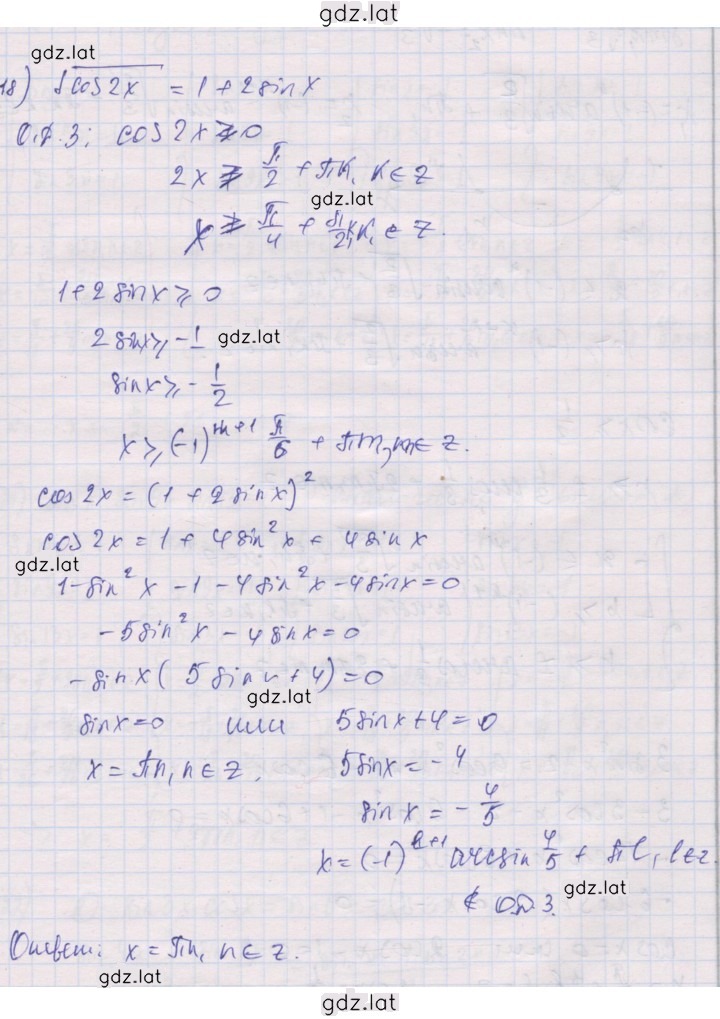 gdz.lat
gdz.lat
18) √cos2x = 1 + 2sinx
О.Д.З; cos2x ≥ 0
2x ≥ π/2 + πk, k ∈ z
gdz.lat
x ≥ π/4 + π/2 k, k ∈ z.
1 + 2sinx ≥ 0
2sinx ≥ -1 gdz.lat
sinx ≥ - 1/2
x ≥ (-1)^(m+1) π/6 + πm, m ∈ z.
cos2x = (1 + 2sinx)²
cos2x = 1 + 4sin²x + 4sinx
gdz.lat
1 - sin²x - 1 - 4sin²x - 4sinx = 0
- 5sin²x - 4sinx = 0
- sinx ( 5sinx + 4) = 0
gdz.lat
sinx = 0 или 5sinx + 4 = 0
x = πn, n ∈ z. 5sinx = - 4
sinx = - 4/5
x = (-1)^(l+1) arcsin 4/5 + πl, l ∈ z
gdz.lat
∉ О.Д.З.
Ответ: x = πn, n ∈ z.
gdz.lat
gdz.lat